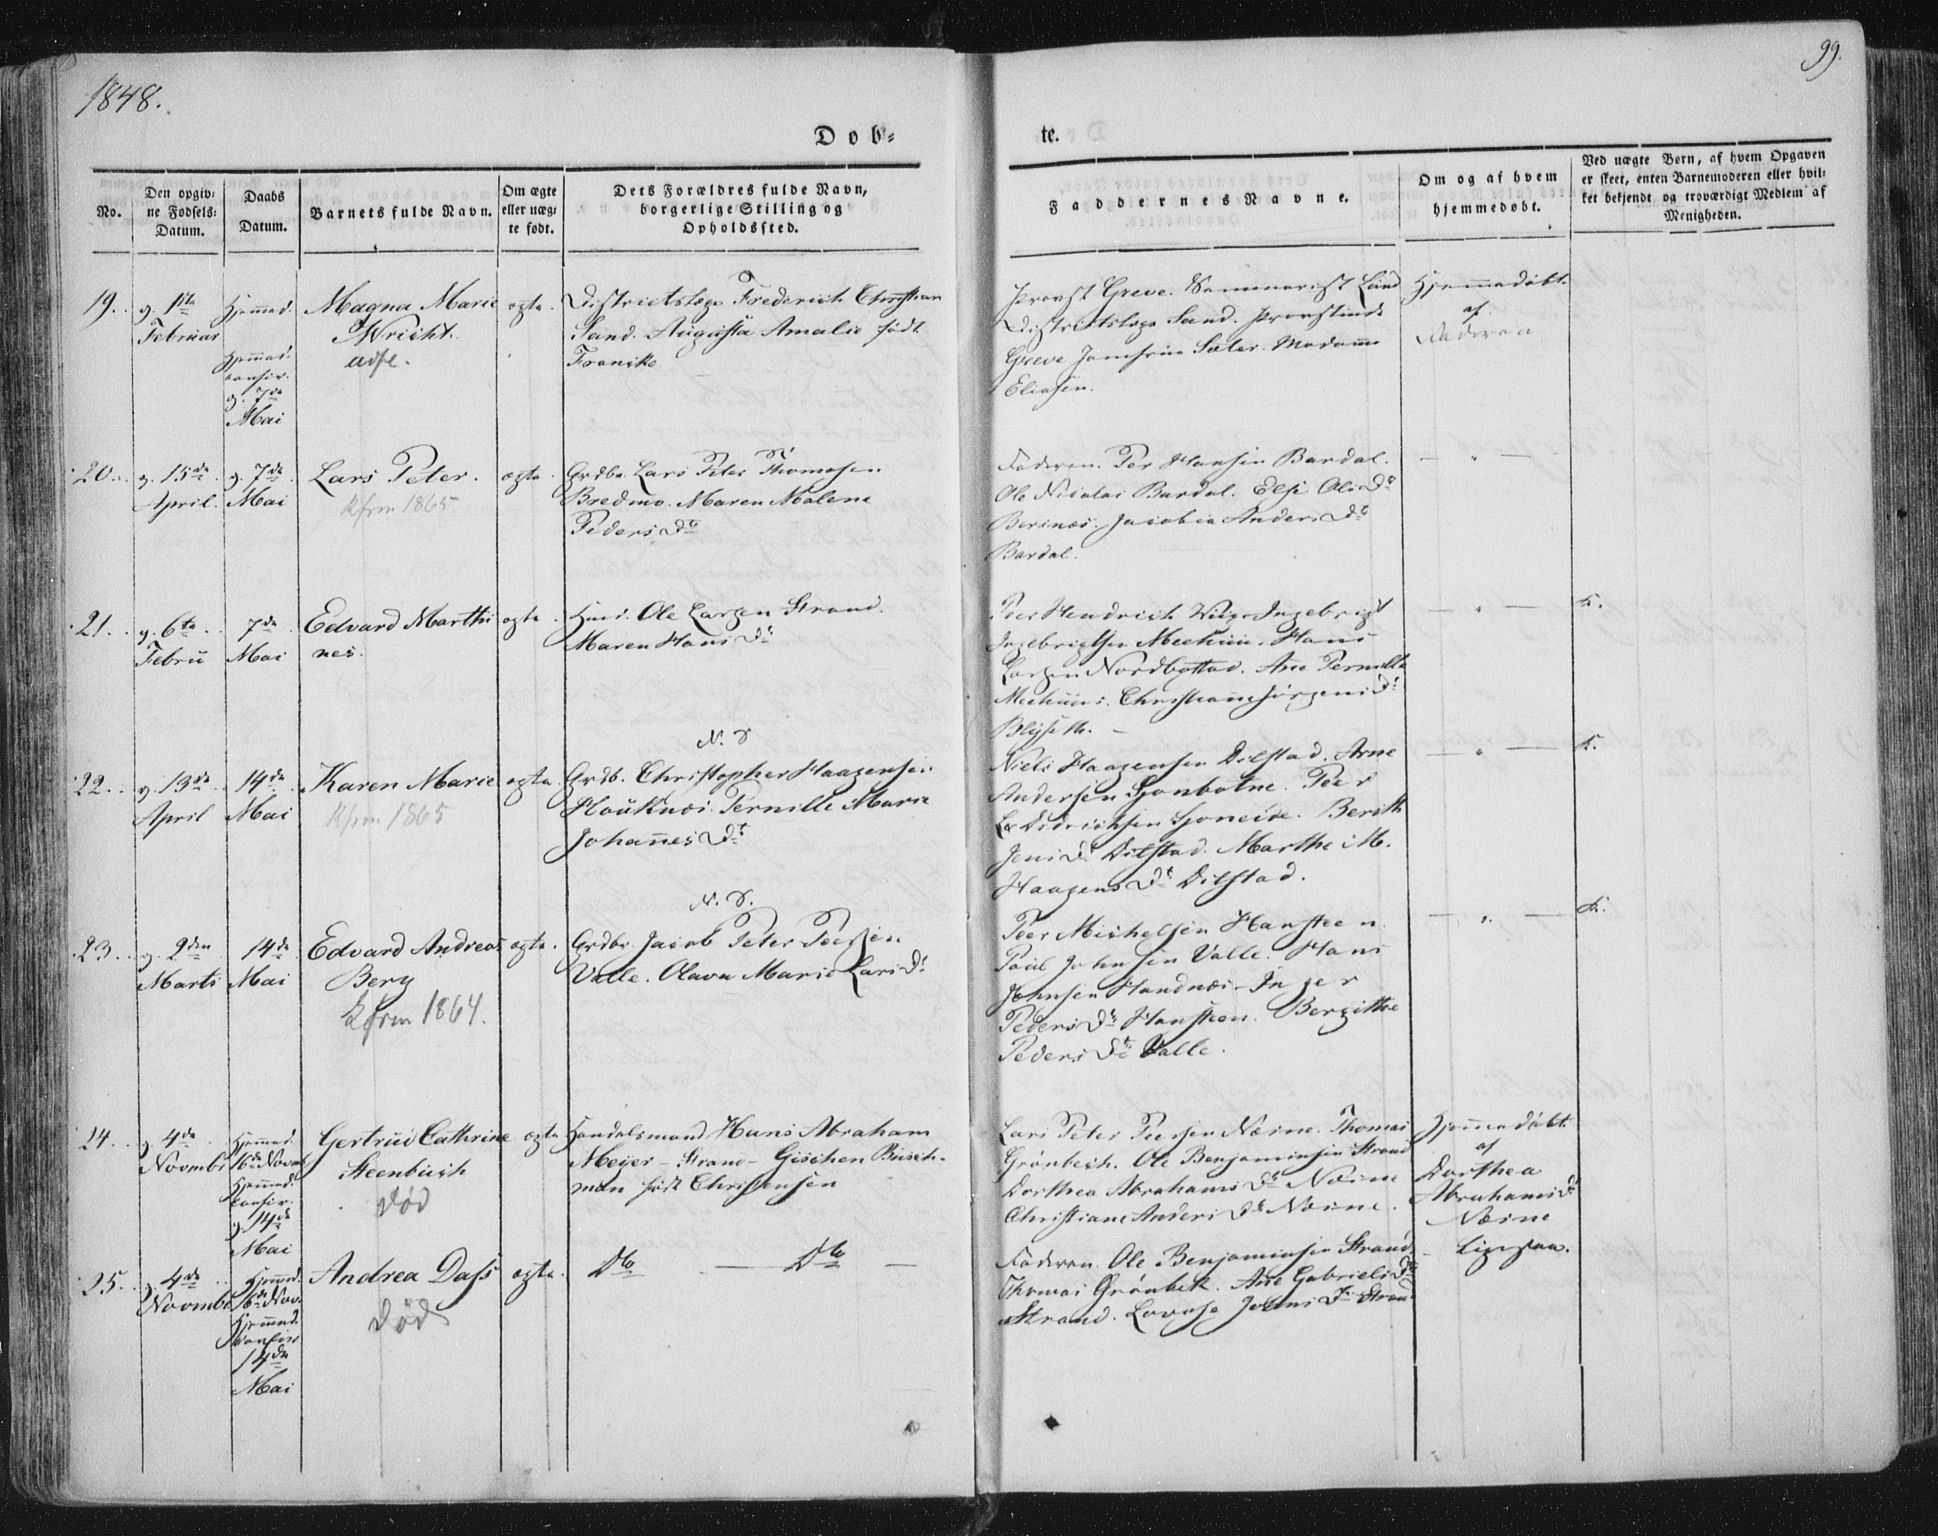 1848.
99.
Døb-
te.
No.
Den opgiv-
ne Fødsels-
Datum.
Daabs
Datum.
Barnets fulde Navn.
Om ægte
eller uæg-
te født.
Dets Forældres fulde Navn,
borgerlige Stilling og
Opholdssted.
Faddernes Navne.
Om og af hvem
hjemmedøbt.
Ved uægte Børn, af hvem Opgaven
er skeet, enten Barnemoderen eller hvil-
ket bekjendt og troværdigt Medlem af
Menigheden.
19.
g. 1ste
Februar
Hjemmed.
Hjemmed.
g. 7de
Mai
Magna Marie
Wricht.
ægte.
Districtslæge Frederich Christian
Sand. Augusta Amalie født
Provst Greve. Seminarist Lund
Districtslæge Sand. Provstinde
Greve Jomfrue Madame
Eliasen.
Hjemmedøbt
af
Faderen
20.
g. 15de
April.
g. 7de
Mai
Lars Peter.
Kfrm 1865
ægte.
Grdbr. Lars Peter Thomasen
Bredmo. Maren Malene
Peders Dtr
Faderen. Per Hansen Bardal.
Ole Nicolai Bardal. Else Ols Dr
Jacobia Anders Dr
Bardal.
— " —
21.
g. 6te
Febru
7de
Mai
Edvard Marthi
nes.
ægte.
Huus. Ole Larsen Strand.
Maren Hans Dr
Peer Hendrich Ingebrigt
Ingebrigtsen Hans
Larsen Nordbostad. Ane Pernille
Christiane Jørgens Dr
— " —
22.
g. 13de
April
14de
Mai
Karen Marie
Kfrm 1865
ægte.
N. S
Grdb. Christopher Haagensen
Hauknes. Pernille Marie
Johannes Dr
Niels Haagensen Dilstad. Arne
Andersen Sjonbotne. Peer
Didrichsen Sjoneide. Berith
Jens Dr Dilstad. Marthe M.
Haagens Dr Dilstad.
— " —
23.
g. 2den
Marts
14de
Mai
Edvard Andreas
Berg
Kfrm 1864.
ægte.
N. S.
Grdbr. Jacob Peter Peersen
Valle. Olava Marie Lars Dr
Peer Michelsen Hansteen
Paul Johnsen Valle. Hans
Johnsen Handnes. Inger
Peders Dr Hansteen. Bergitthe
Peders Dr Valle.
— " —
24.
g. 4de
Novmbr
Hjemmed.
16de Novmb
Hjemmed.
g. 14de
Mai
Gertrud Cathrine
Steenbuch
død
ægte
Handelsmand Hans Abraham
Meyer - Strand - Gischen Busch-
man født Christensen
Lars Peter Peersen Næsne. Thomas
Grønbech. Ole Benjaminsen Strand
Dorthea Abrahams Dr Næsne
Christiane Anders Dr Næsne.
Hjemmedøbt
af
Dorthea
Abrahams Dr
Næsne
25.
g. 4de
Novmbr
Hjemmed.
16de Nov.
Hjemmed.
14de
Mai
Andrea Dass
død
ægte.
Dto — Dto —
Faderen. Ole Benjaminsen Strand
Thomas Grønbek. Ane Gabriels Dr
Strand. Lovise Johns Dr Strand
- ligesaa.